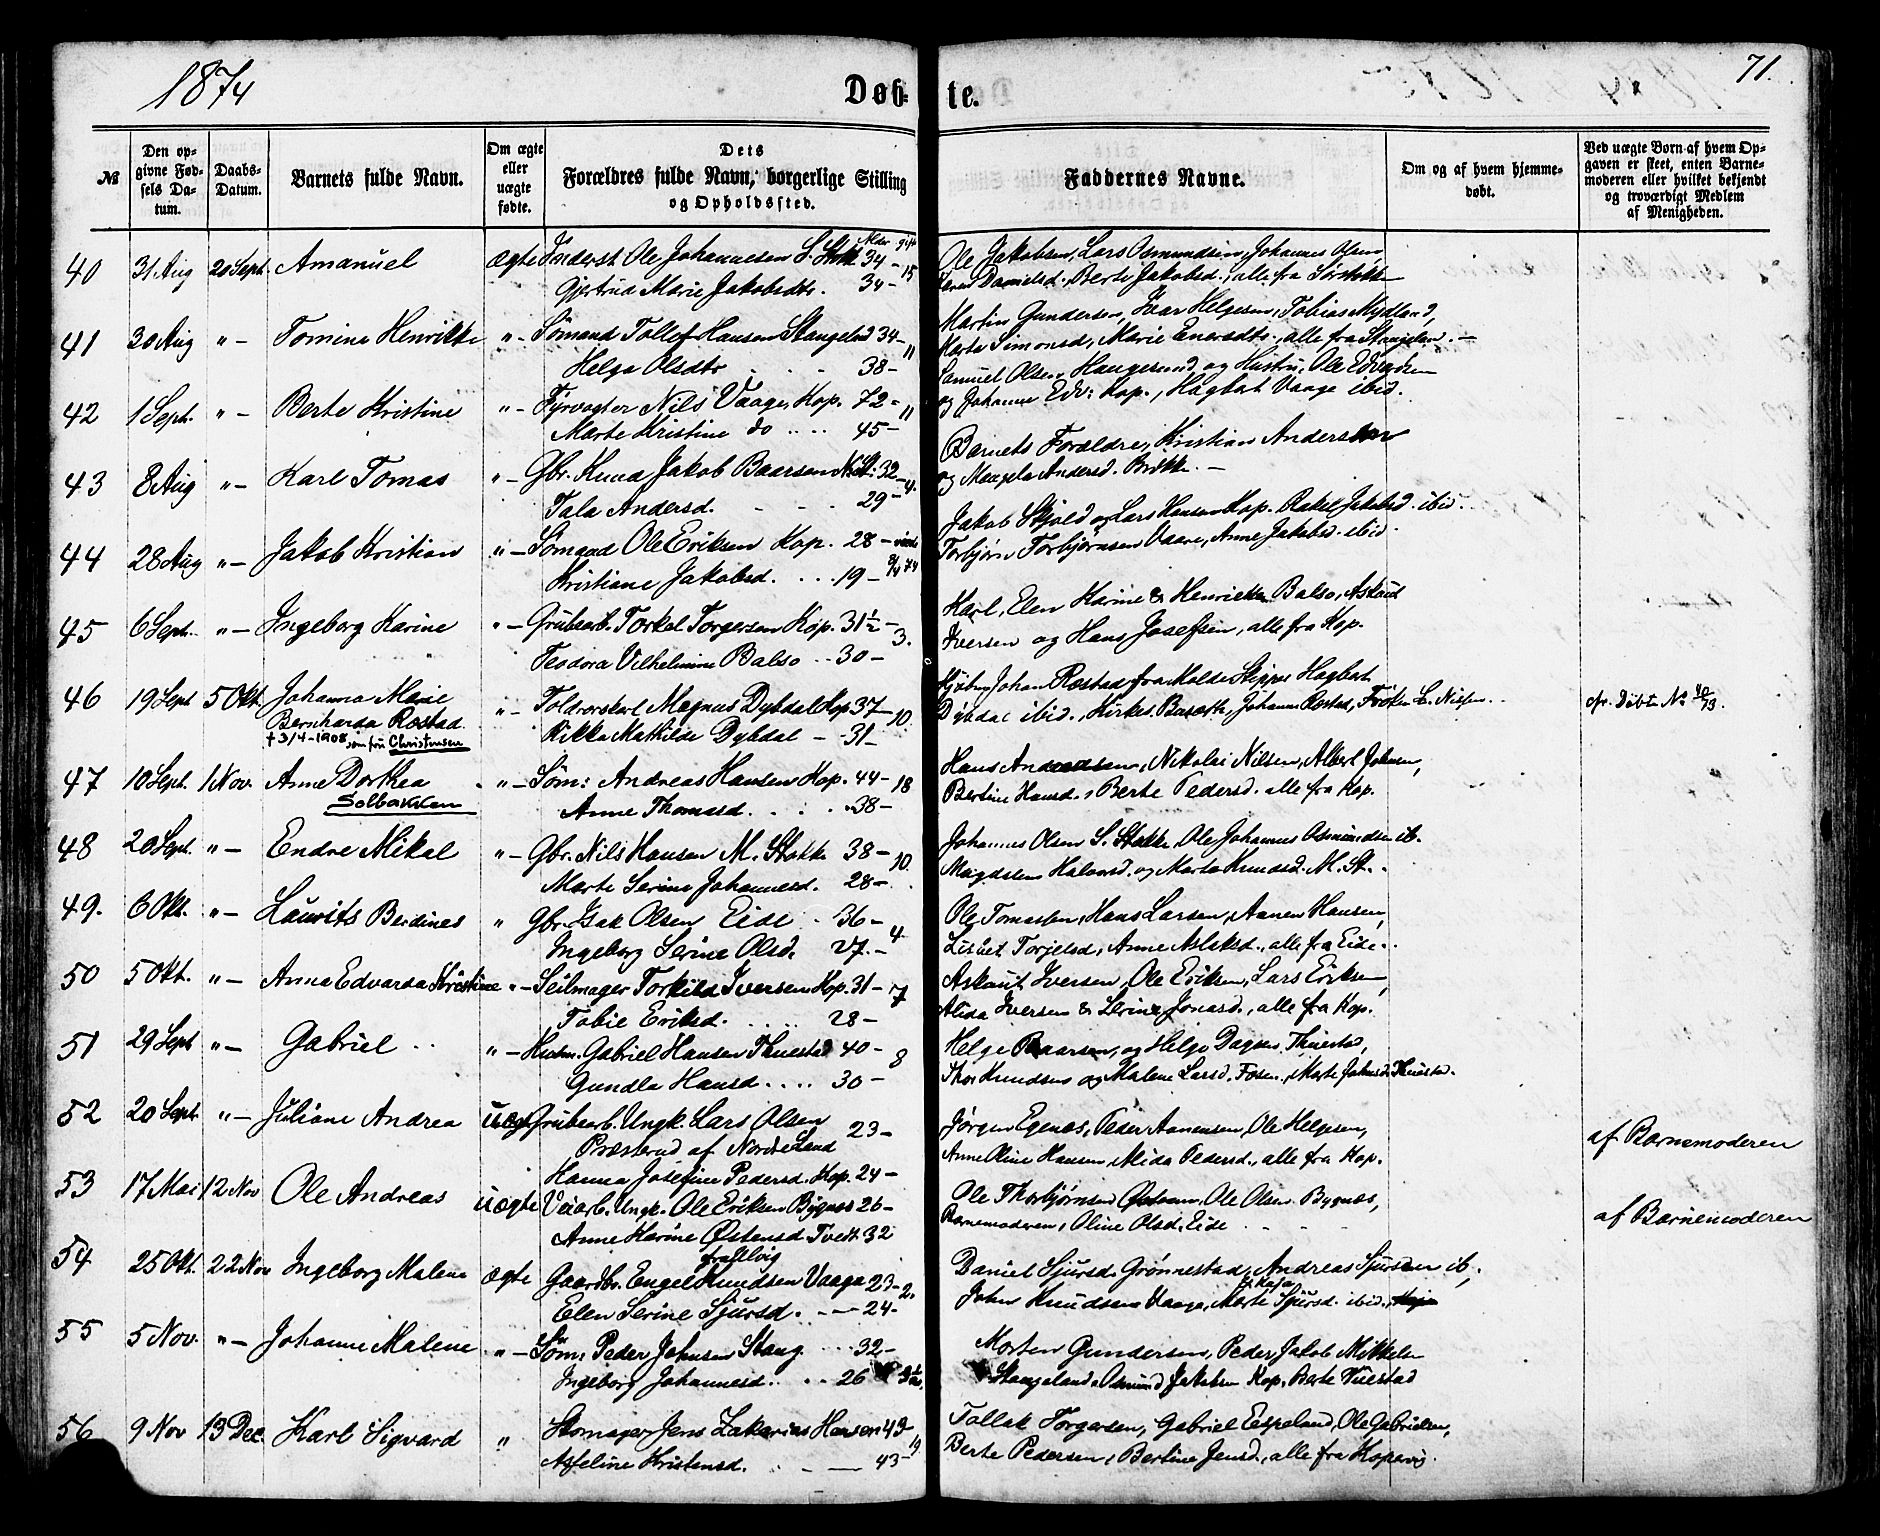 1874
Døbte.
71.
№
Den opgivne Fødsels Datum.
Daabs-Datum.
Barnets fulde Navn.
Om ægte eller uægte fødte.
Dets Forældres fulde Navn, borgerlige Stilling og Opholdssted.
Faddernes Navne.
Om og af hvem hjemmedøbt.
Ved uægte Børn af hvem Opgaven er skeet, enten Barnemoderen eller hvilket bekjendt og troværdigt Medlem af Menigheden.
Alder gift
40 31 Aug 20 Sept. Amanuel ægte Inderst Ole Johannesen S. Stokke 34 - 15
Gjertrud Marie Jakobsdtr. 34 -
Ole Jakobsen, Lars Osmundsen, Johannes Olsen,
Danielsd., Berte Jakobsd., alle fra Sørstokke
41 30 Aug " - Tomine Henrikke " - Sömand Tollef Hansen Stangeland 34 - 11
Helga Olsdtr . . . 38 -
Martin Gundersen, Ivar Helgesen, Tobias Mydland,
Marta Simonsd, Marie Enersdtr., alle fra Stangeland. -
42 1 Sept. " - Berte Kristine " - Fyrvogter Nils Vaage, Kop. 72 - 11
Marte Kristine do . . . . 45 -
Samuel Olsen, Haugesund og Hustru, Ole Edvardsen
og Johanne Edv: Kop., Hagbart Vaage ibid.
43 8 Aug " - Karl Tomas " - Gbr. Knud Jakob Baarsen 32 - 4.
Tala Andersd. - - - 29 -
Barnets Forældre, Kristian Andersen
og Andersd. Brekke. -
44 28 Aug " - Jakob Kristian " - Sømand Ole Eriksen Kop. 28 - viede
Kristiane Jakobsd. . . . 19 - 74
Jakob Skjold og Lars Hansen Kop. Rakel Jakobsd. ibid.
Torbjørn Torbjørnsen Vaare, Anne Jakobsd. ibid.
45 6 Sept. " - Ingeborg Karine " - Grubearb. Torkel Torgersen Kop. 31½ - 3.
Teodora Vilhelmine Balso . . 30 -
Karl, Elen Karine & Henrikke Balso, Askaut
Iversen og Hans Josefsen, alle fra Kop.
46 19 Sept 5 Okt. Johanna Marie " - Toldrorskarl Magnus Dybdal Kop 37 - 10.
Bernharda Røstad Rikka Mathilde Dybdal - - 31 -
† 3/4 - 1908 som fru Christensen
Johan Røstad fra Molde Skipper Hagbart
Dybdal ibid., Johanne Røstad, Frøken L. Nielsen . .
cfr. Døbte № 40/73.
47 10 Sept. 1 Nov. Anne Dorthea " - Søm: Andreas Hansen Kop. 44 - 18
Solbakken Anne Thomasd. . . . 38 -
Hans Andersen, Nikolai Nilsen, Albert Johnsen,
Bertine Hansd., Berte Pedersd. alle fra Kop.
48 20 Sept. " - Endre Mikal " - Gbr. Nils Hansen M. Stokke 38 - 10.
Marte Serine Johannesd. 28 -
Johannes Olsen S. Stokke, Ole Johannes Osmundsen ib.
Magdalena Halvorsd. og Marta Knudsd. M. St. .
49. 6 Okt. " - Laurits Berdines " Gbr. Isak Olsen Eide . 36 - 4
Ingeborg Serine Olsd. 27. -
Ole Tomassen, Hans Larsen, Aanen Hansen,
Lisbet Torjelsd., Anne Aslaksd., alle fra Eide . .
50 5 Okt. " - Anna Edvarda Kristine " - Seilmager Torkild Iversen Kop. 31 - 7
Tobie Eriksd. . . . . 28 -
Askaut Iversen, Ole Eriksen, Lars Eriksen,
Alida Iversen & Serine Jonasd., alle fra Kop.
51 29 Sept " - Gabriel . . " - Husm. Gabriel Hansen Thuestad 40 - 8
Gundla Hansd . . . . 30 -
Helge Baarsen, og Helge Dagsen Thuestad,
Thor Knudsen og Malene Larsd. Fosen, Marte Johnsd. Thuestad.
52 20 Sept. " - Juliane Andrea uægte Grubearb. Ungk. Lars Olsen
Præsterud af Nordre Land 23 -
Hanna Josefine Pedersd. Kop. 24 -
Jørgen Egenæs, Peder Aanensen, Ole Helgesen,
Anne Oline Hansen, Mida Pedersd., alle fra Kop.
af Barnemoderen
53 17 Mai 12 Nov Ole Andreas uægte Veiarb. Ungk. Ole Eriksen Bygnæs 26 -
Anne Karine Østensd Tvedt 32
Ole Thorbjørnsen Østrem, Ole Olsen Bygnæs,
Barnemoderen, Oline Olsd. Eide - - -
af Barnemoderen
54 25 Okt. 22 Nov Ingeborg Malene ægte Gaardbr. Engel Knudsen Vaage 23 - 2.
Elen Serine Sjursd. . - - 24 -
Daniel Sjursd. Grønnestad, Andreas Sjursen ib.,
John Knudsen Vaage, Marte Sjursd. ibid.
55 5 Nov. " - Johanne Malene " - Søm. Peder Johnsen Stang . . . 32 -
Ingeborg Johannesd. . . . 26
Morten Gundersen, Peder Jakob Mikkelsen
Stangeland, Osmund Jakobsen Kop. Berte Vuestad
56 9 Nov 13 Dec. Karl Sigvard " Skomager Jens Zakarias Hansen 43 - 19
Asseline Kristensd. . . - - 43 -
Tollak Torgersen, Gabriel Espeland, Ole Gabrielsen,
Berte Pedersen, Bertine Jensd., alle fra Kopervig.